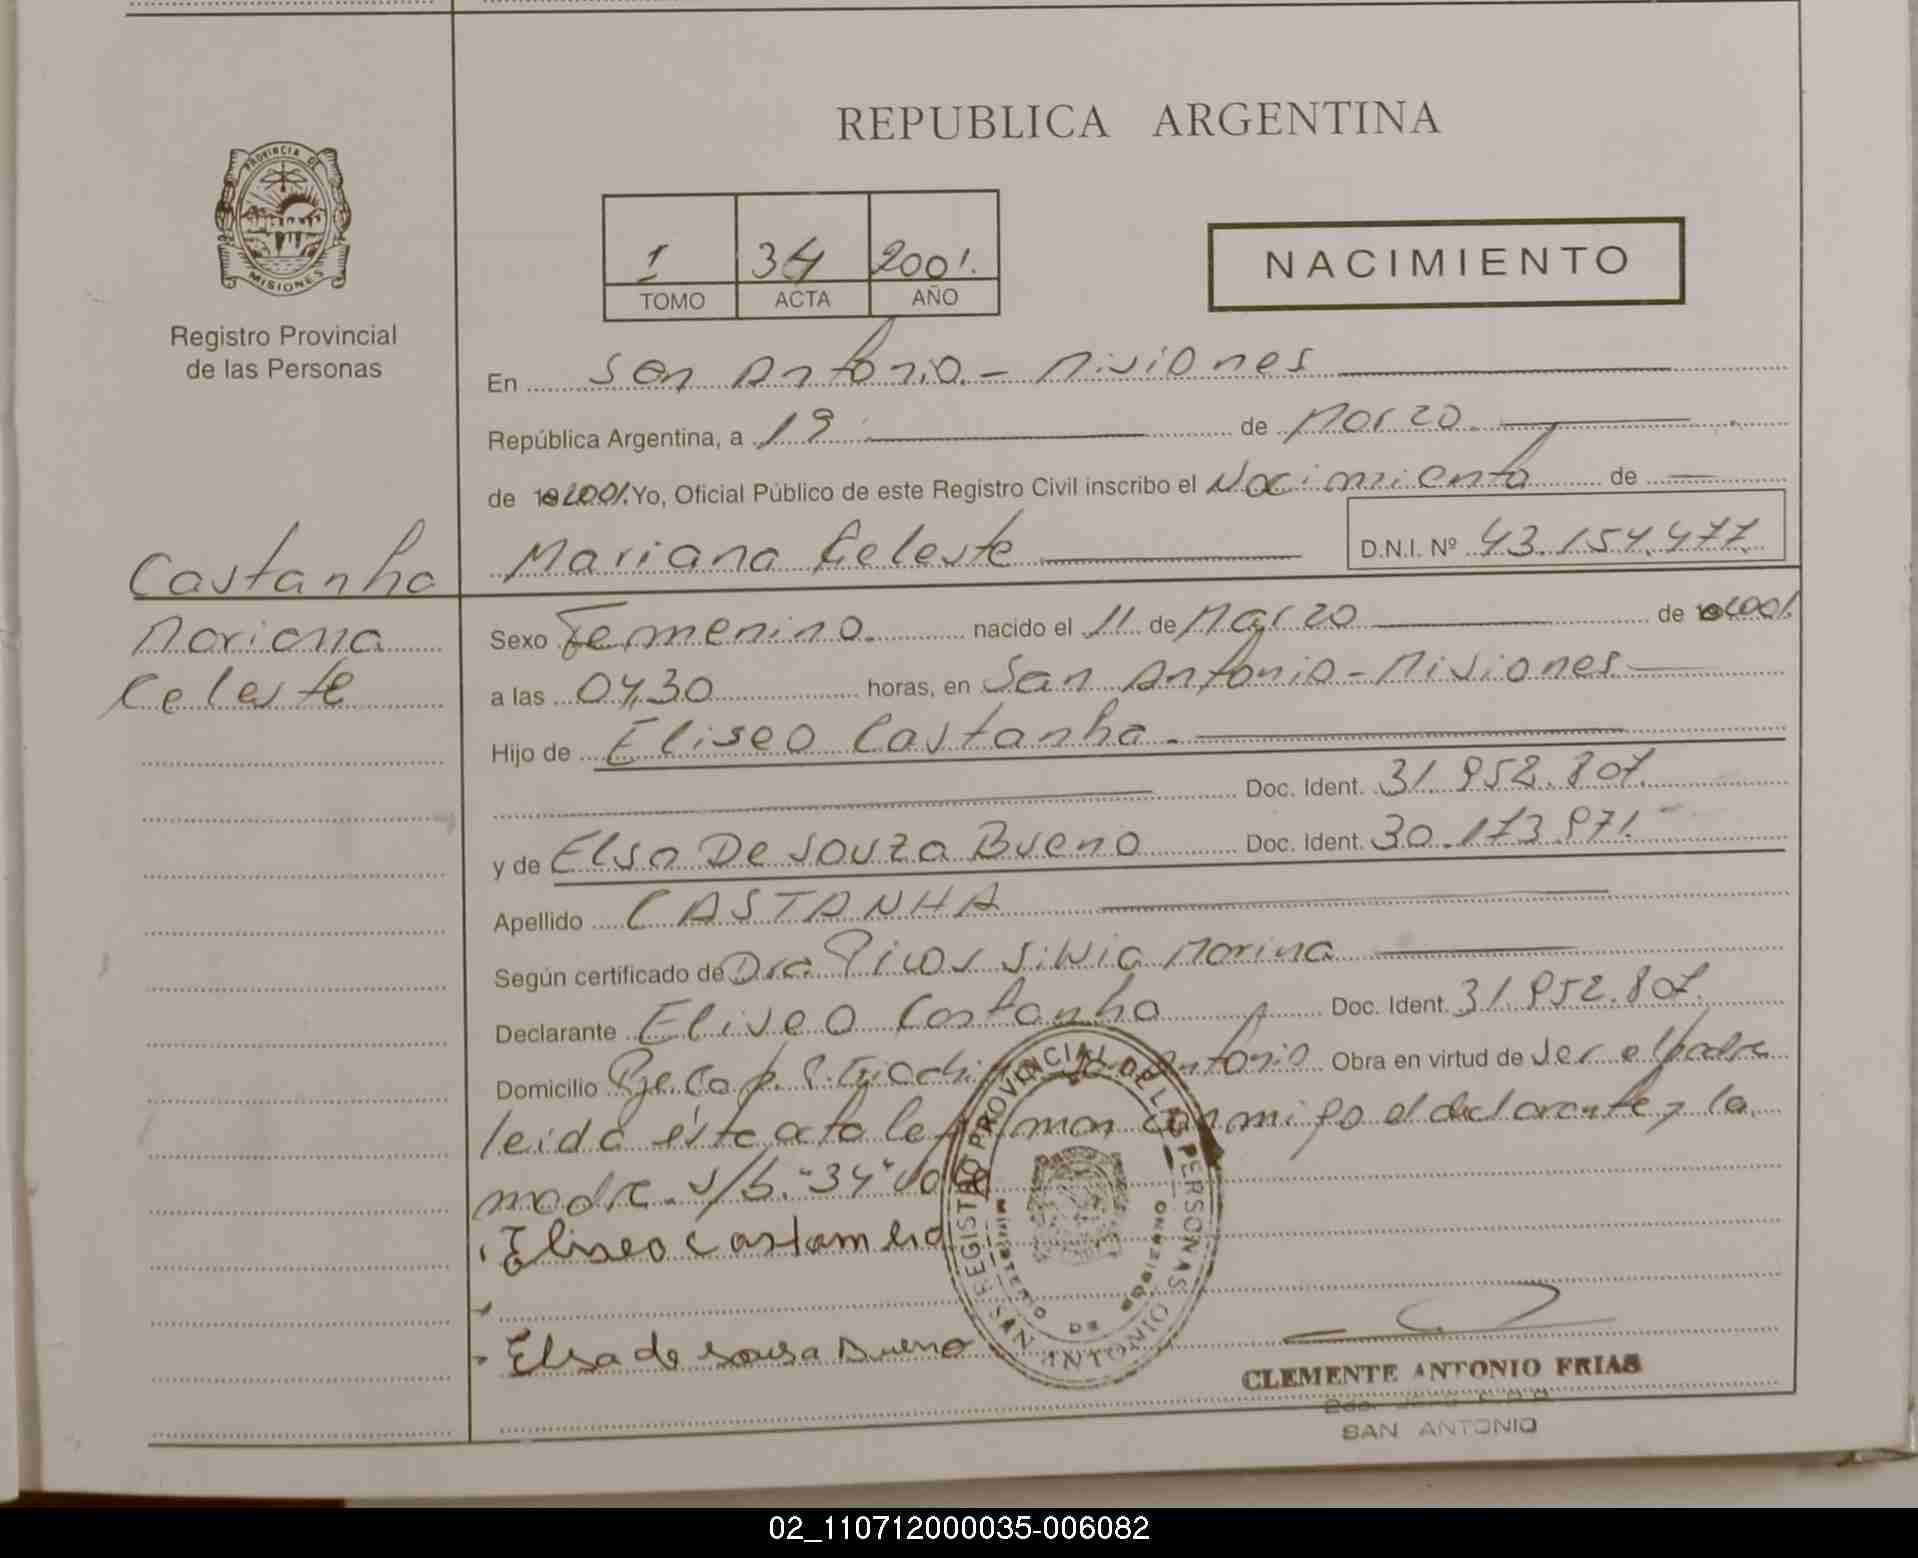 REPUBLICA ARGENTINA
PROVINCIA DE
MISIONES
Registro Provincial
de las Personas
1 34 2001.
TOMO ACTA AÑO
NACIMIENTO
En San Antonio - Misiones
República Argentina, a 19 de Marzo.
de 2001. Yo, Oficial Público de este Registro Civil inscribo el Nacimiento de
Mariana Celeste D.N.I. Nº 43.154.477
Castanha
Mariana
Celeste
Sexo Femenino. nacido el 11 de Marzo de 2001.
a las 04,30 horas, en San Antonio - Misiones
Hijo de Eliseo Castanha.
Doc. Ident. 31.952.807.
y de Elsa De Souza Bueno Doc. Ident. 30.173.971.
Apellido CASTANHA
Según certificado de Dra. Silvia Marina
Declarante Eliseo Castanha Doc. Ident. 31.952.807.
Domicilio San Antonio Obra en virtud de ser el padre
leida ésta acta la firman conmigo el declarante y la
madre. s/b. "34"
Eliseo Castanha
Elsa de sousa Bueno
REGISTRO PROVINCIAL DE LAS PERSONAS
MINISTERIO DE GOBIERNO
SAN ANTONIO
CLEMENTE ANTONIO FRIAS
SAN ANTONIO
02_110712000035-006082